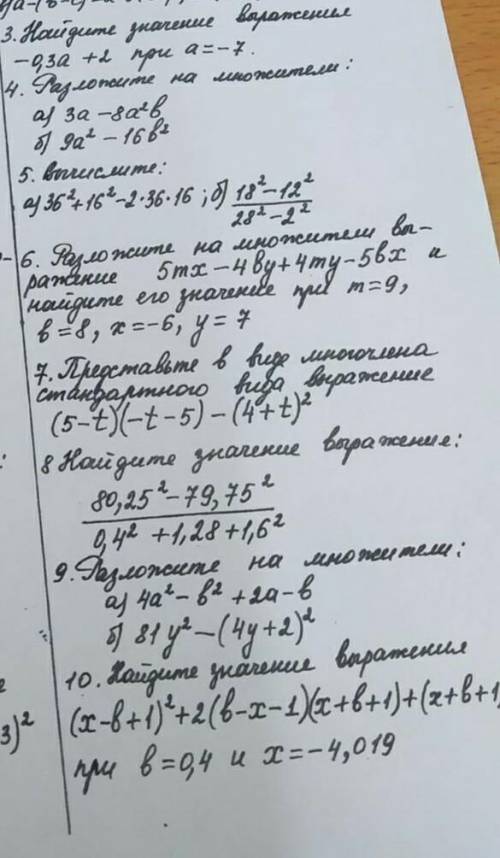 3. Найдите значение выражения
-0,3a + 2 при a = -7.
4. Разложите на множители:
а) 3a - 8a²b
б) 9a² - 16b²
5. вычислите:
а) 36² + 16² - 2·36·16 ; б) (18² - 12²)/(28² - 2²)
6. Разложите на множители вы-
ражение 5mx - 4by + 4my - 5bx и
найдите его значение при m = 9,
b = 8, x = -6, y = 7
7. Представьте в виде многочлена
стандартного вида выражение
(5-t)(-t-5) - (4+t)²
8 Найдите значение выражение:
80,25² - 79,75²
0,4² + 1,28 + 1,6²
9. Разложите на множители:
а) 4a² - b² + 2a - b
б) 81y² - (4y+2)²
10. Найдите значение выражения
3)² (x-b+1)² + 2(b-x-1)(x+b+1) + (x+b+1)
при b = 0,4 и x = -4,019